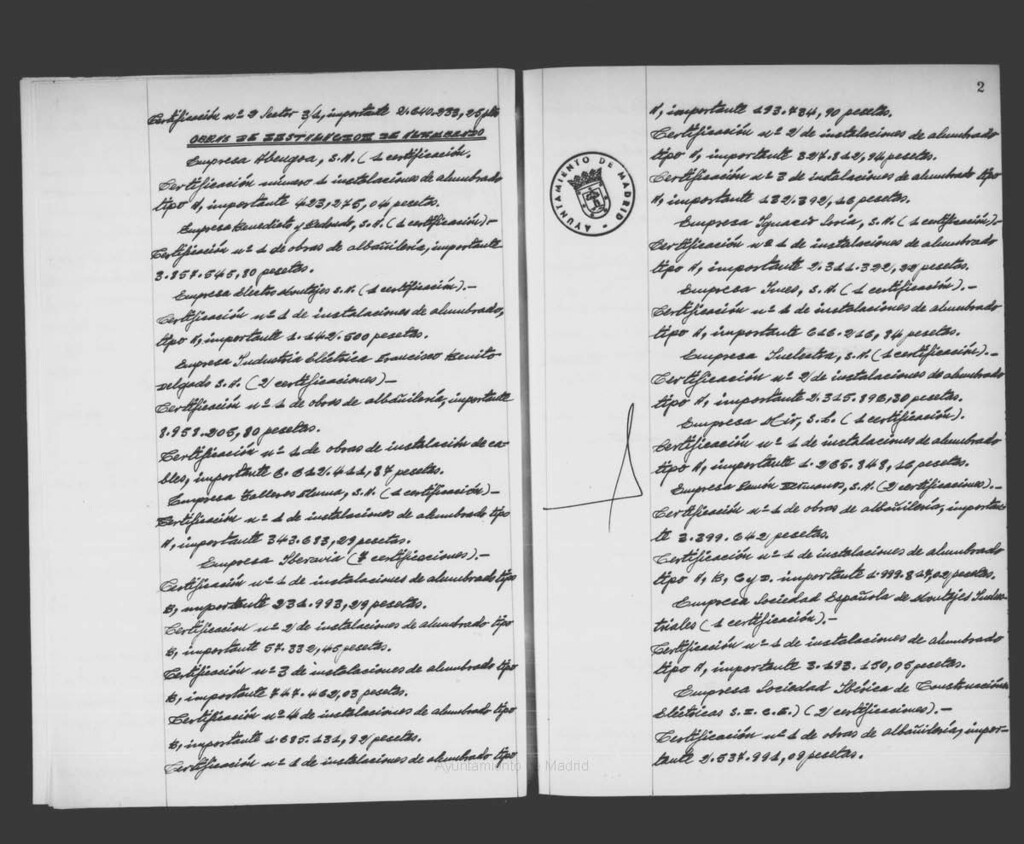 Certificación nº 2 Sector 3/1, importante 2.610.933,25 pts
OBRAS DE DESTRUCCION DE ALUMBRADO
Empresa Abengoa, S.A. (1 certificación.
Certificación número 1 instalaciones de alumbrado
tipo A, importante 423,275,04 pesetas.
Empresa Benedicto y Redondo, S.A. (1 certificación)-
Certificación nº 1 de obras de albañilería, importante
3.857.545,80 pesetas.
Empresa Electro Montajes S.A. (1 certificación).-
Certificación nº 1 de instalaciones de alumbrado,
tipo A, importante 1.142.500 pesetas.
Empresa Industria Eléctrica Francisco Benito
Delgado S.A. (2 certificaciones)-
Certificación nº 1 de obras de albañilería, importante
8.958.205,80 pesetas.
Certificación nº 1 de obras de instalación de ca-
bles, importante 6.612.411,87 pesetas.
Empresa Talleres, S.A. (1 certificación)-
Certificación nº 1 de instalaciones de alumbrado tipo
A, importante 343.683,29 pesetas.
Empresa Iberavia (7 certificaciones).-
Certificación nº 1 de instalaciones de alumbrado tipo
B, importante 231.993,29 pesetas.
Certificacion nº 2 de instalaciones de alumbrado tipo
B, importante 57.332,45 pesetas.
Certificación nº 3 de instalaciones de alumbrado tipo
B, importante 747.462,03 pesetas.
Certificación nº 4 de instalaciones de alumbrado tipo
B, importante 1.685.131,92 pesetas.
Certificación nº 1 de instalaciones de alumbrado tipo
2
A, importante 193.734,90 pesetas.
Certificación nº 2 de instalaciones de alumbrado
tipo A, importante 327.812,94 pesetas.
Certificación nº 3 de instalaciones de alumbrado tipo
A, importante 132.392,16 pesetas.
Empresa Ignacio Soria, S.A. (1 certificación)-
Certificación nº 1 de instalaciones de alumbrado
tipo A, importante 2.311.322,22 pesetas.
Empresa Imes, S.A. (1 certificación).-
Certificación nº 1 de instalaciones de alumbrado
tipo A, importante 616.216,34 pesetas.
Empresa Inelectra, S.A. (1 certificación).-
Certificación nº 2 de instalaciones de alumbrado
tipo A, importante 2.315.896,30 pesetas.
Empresa Mir, S.L. (1 certificación).
Certificación nº 1 de instalaciones de alumbrado
tipo A, importante 1.265.848,16 pesetas.
Empresa Ramón Hermanos, S.A. (2 certificaciones).-
Certificación nº 1 de obras de albañilería, importan-
te 3.399.642 pesetas.
Certificación nº 1 de instalaciones de alumbrado
tipo A, B, C y D. importante 1.999.847,02 pesetas.
Empresa Sociedad Española de Montajes Indus-
triales (1 certificación).-
Certificación nº 1 de instalaciones de alumbrado
tipo A, importante 3.193.150,05 pesetas.
Empresa Sociedad Ibérica de Construcciones
Eléctricas S.I.C.E.) (2 certificaciones).-
Certificación nº 1 de obras de albañilería, impor-
tante 2.537.991,09 pesetas.
AYUNTAMIENTO DE MADRID
Ayuntamiento de Madrid